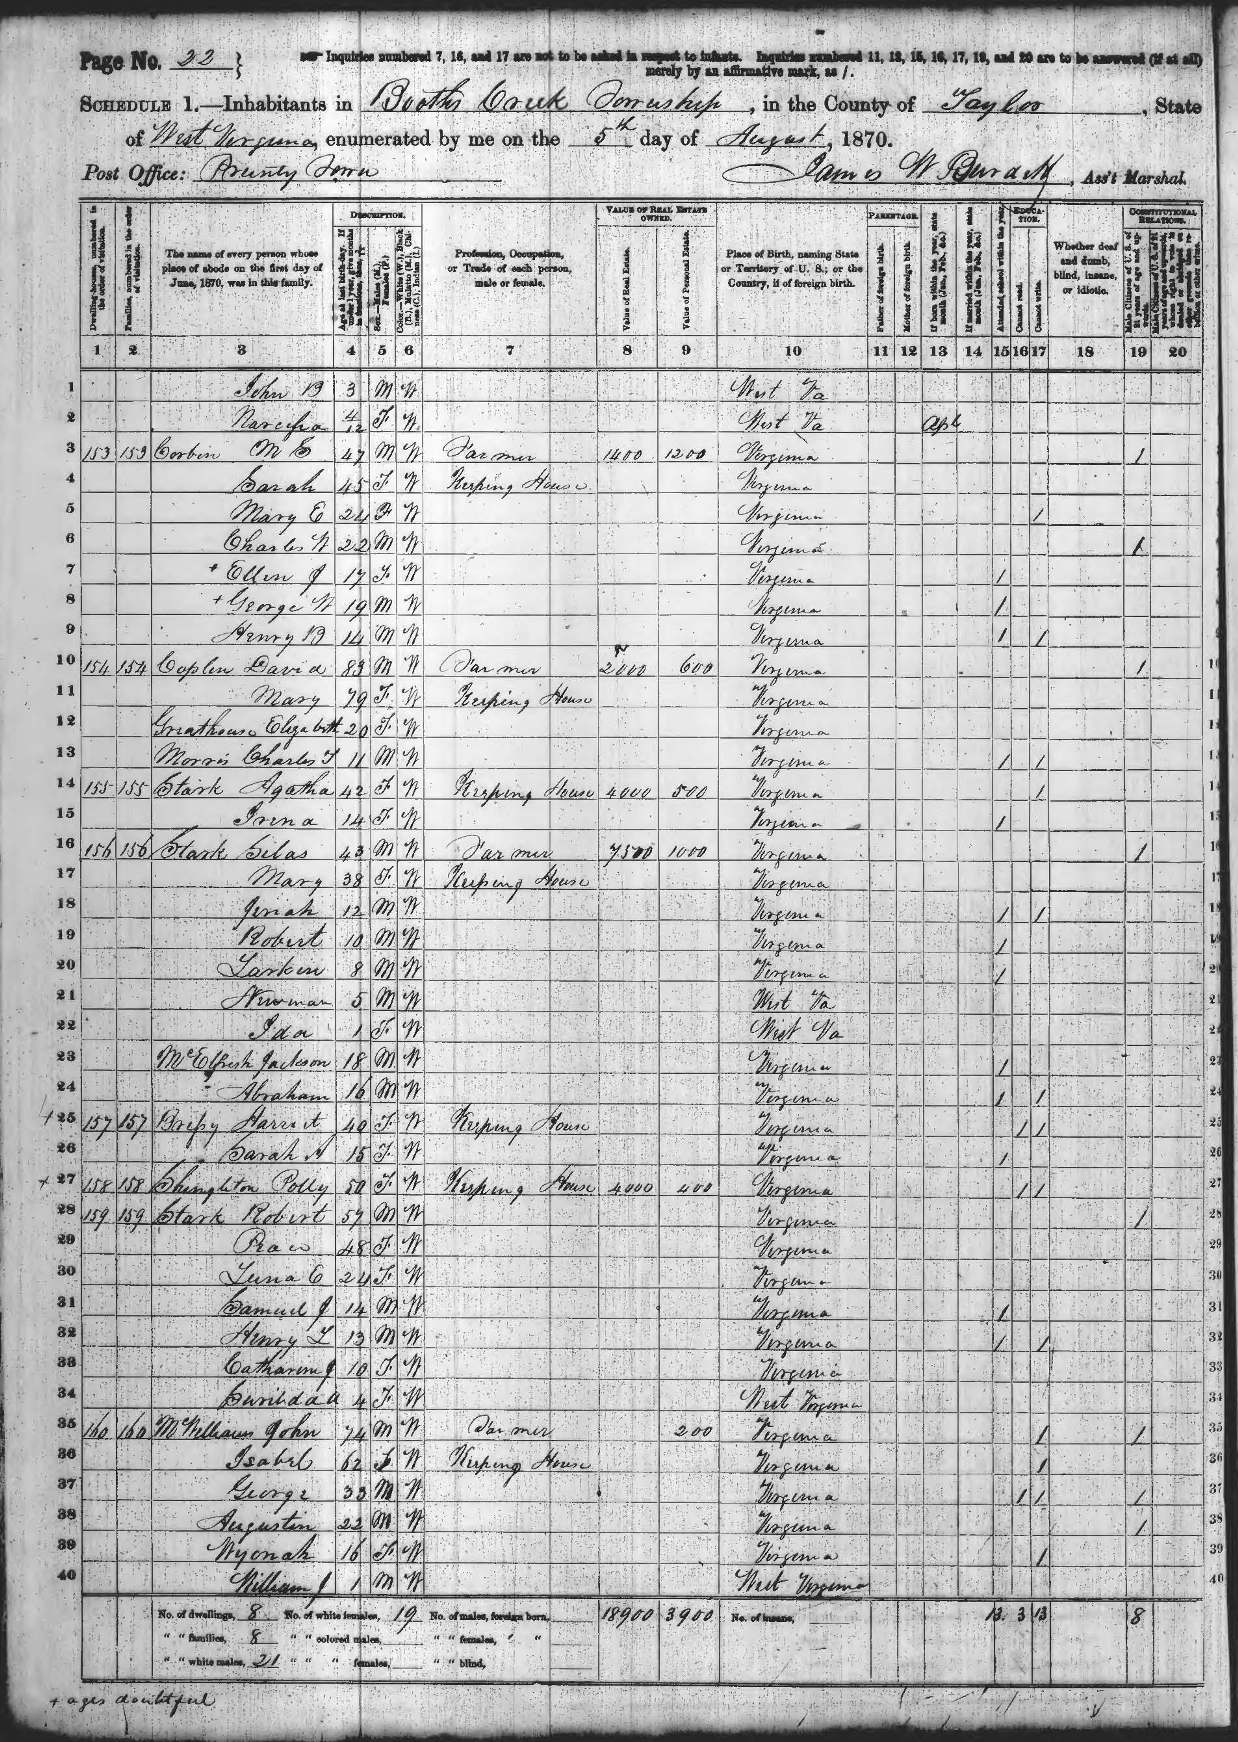 Page No. 22
Inquiries numbered 7, 16, and 17 are not to be asked in respect to infants. Inquiries numbered 11, 12, 15, 16, 17, 19, and 20 are to be answered (if at all)
merely by an affirmative mark, as /.
SCHEDULE 1.—Inhabitants in Booths Creek Township, in the County of Taylor, State
of West Virginia, enumerated by me on the 5th day of August, 1870.
Post Office: Prunty Town James W Burdett, Ass't Marshal.
Dwelling-houses, numbered in the order of visitation.
Families, numbered in the order of visitation.
The name of every person whose place of abode on the first day of June, 1870, was in this family.
DESCRIPTION.
Age at last birth-day. If under 1 year, give months in fractions, thus, 3/12
Sex.—Males (M.), Females (F.)
Color.—White (W.), Black (B.), Mulatto (M.), Chinese (C.), Indian (I.)
Profession, Occupation, or Trade of each person, male or female.
VALUE OF REAL ESTATE OWNED.
Value of Real Estate.
Value of Personal Estate.
Place of Birth, naming State or Territory of U. S.; or the Country, if of foreign birth.
PARENTAGE.
Father of foreign birth.
Mother of foreign birth.
If born within the year, state month (Jan., Feb., &c.)
If married within the year, state month (Jan., Feb., &c.)
Attended school within the year.
EDUCATION.
Cannot read.
Cannot write.
Whether deaf and dumb, blind, insane, or idiotic.
CONSTITUTIONAL RELATIONS.
Male Citizens of U. S. of 21 years of age and upwards.
1 2 3 4 5 6 7 8 9 10 11 12 13 14 15 16 17 18 19 20
1 John B 3 M W West Va
2 4/12 F W West Va Apl
3 153 153 Corbin M E 47 M W Farmer 1400 1200 Virginia 1
4 Sarah 45 F W Keeping House Virginia
5 Mary E 24 F W Virginia /
6 Charles W 22 M W Virginia 1
7 + Ellen J 17 F W Virginia /
8 + George W 19 M W Virginia /
9 Henry B 14 M W Virginia / /
10 154 154 Coplin David 83 M W Farmer 2000 600 Virginia 1
11 Mary 79 F W Keeping House Virginia
12 Greathouse Elizabeth 20 F W Virginia
13 Morris Charles F 11 M W Virginia / /
14 155 155 Stark Agatha 42 F W Keeping House 4000 500 Virginia /
15 Irena 14 F W Virginia /
16 156 156 Stark Silas 43 M W Farmer 7500 1000 Virginia 1
17 Mary 38 F W Keeping House Virginia
18 Jeriah 12 M W Virginia / /
19 Robert 10 M W Virginia /
20 Larkin 8 M W Virginia /
21 Newman 5 M W West Va
22 Ida 1 F W West Va
23 McElfresh Jackson 18 M W Virginia /
24 Abraham 16 M W Virginia / /
25 157 157 Harriet 40 F W Keeping House Virginia / /
26 Sarah A 15 F W Virginia /
+ 27 158 158 Shingleton Polly 50 F W Keeping House 4000 400 Virginia / /
28 159 159 Stark Robert 57 M W Virginia /
29 48 F W Virginia
30 Luna C 24 F W Virginia
31 Samuel J 14 M W Virginia /
32 Henry L 13 M W Virginia / /
33 Catharine J 10 F W Virginia
34 4 F W West Virginia
35 160 160 McWilliams John 74 M W Farmer 200 Virginia / /
36 Isabel 62 F W Keeping House Virginia /
37 George 33 M W Virginia / / /
38 Augustin 22 M W Virginia /
39 Wyonah 16 F W Virginia /
40 William J 1 M W West Virginia
No. of dwellings, 8 No. of white females, 19 No. of males, foreign born, 18900 3900 No. of insane, 13 3 13 8
" " families, 8 " " colored males, " " females, " "
" " white males, 21 " " " females, " " blind,
+ ages doubtful